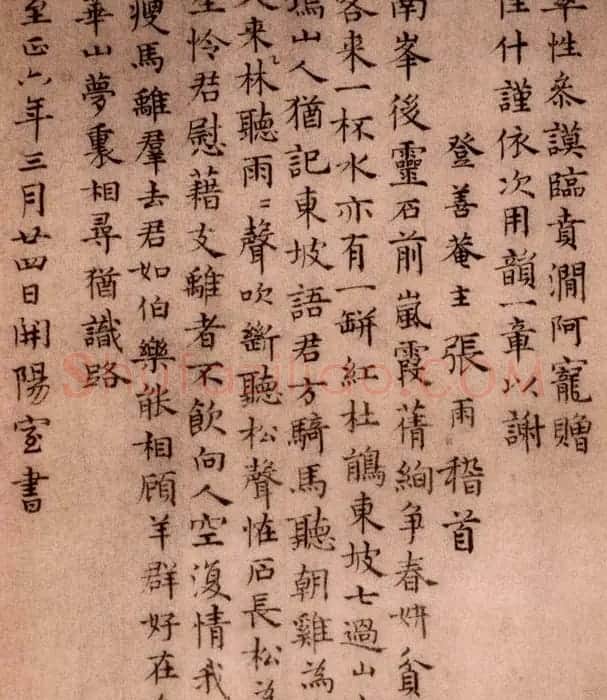 率性參謨臨賁澗阿寵贈
佳什謹依次用韻一章以謝
登善菴主張雨稽首
南峯後靈石前嵐霞蒨絢爭春妍貧
客来一杯水亦有一缾紅杜鵑東坡七過山
塢山人猶記東坡語君方騎馬聽朝雞為
来林聽雨〻聲吹斷聽松聲恠石長松
怜君慰藉支離者不飲向人空復情我
瘦馬離羣去君如伯樂能相顧羊群好在
華山夢裏相尋猶識路
至正六年三月廿四日開陽室書
Shufazidao.COM